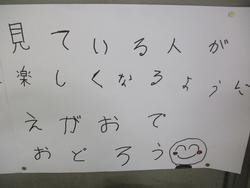 見ている人が
楽しくなるように
えがおで
おどろう